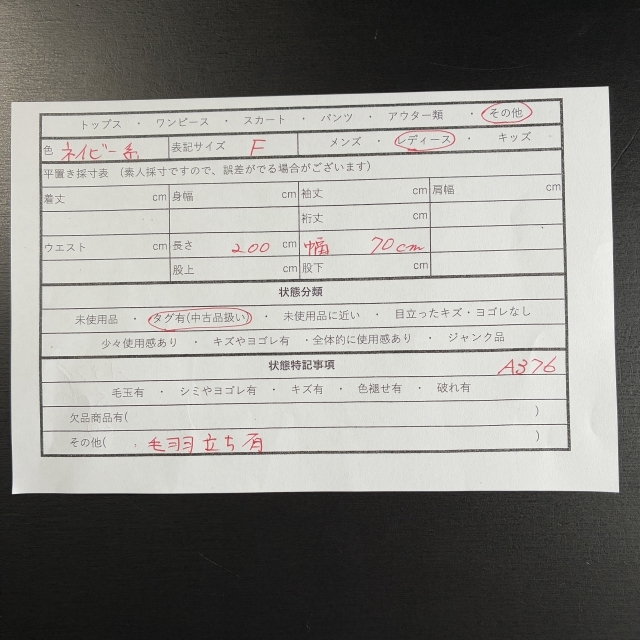 トップス ・ ワンピース ・ スカート ・ パンツ ・ アウター類 ・ その他
色 ネイビー系 表記サイズ F メンズ ・ レディース ・ キッズ
平置き採寸表 (素人採寸ですので、誤差がでる場合がございます)
着丈 cm 身幅 cm 袖丈 cm 肩幅 cm
裄丈 cm
ウエスト cm 長さ 200 cm 幅 70cm
股上 cm 股下 cm
状態分類
未使用品 ・ タグ有(中古品扱い) ・ 未使用品に近い ・ 目立ったキズ・ヨゴレなし
少々使用感あり ・ キズやヨゴレ有 ・全体的に使用感あり ・ ジャンク品
状態特記事項 A376
毛玉有 ・ シミやヨゴレ有 ・ キズ有 ・ 色褪せ有 ・ 破れ有
欠品商品有( )
その他( : 毛羽立ち有 )